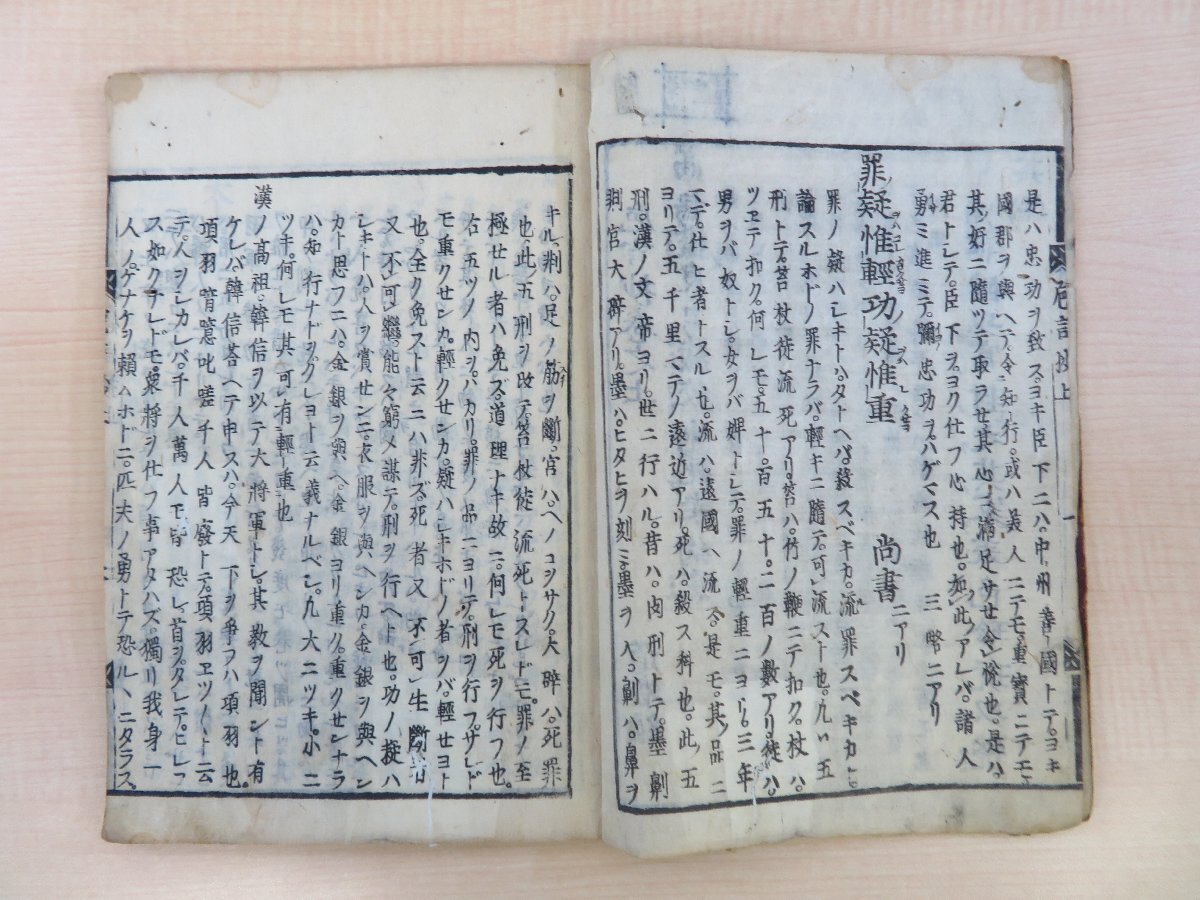 是ハ忠功ヲ致ス。ヨキ臣下ニハ。中州
國郡ヲ與ヘテ令知行。或ハ美人ニテモ。重寳ニテモ
其ノ好ニ隨ツテ取ラせ。其心ニ滿足サせ令悅也。是ハ
君トシテ。臣下ヲ。ヨク仕フ心持也。如此アレバ。諸人
勇ミ進ミテ。彌忠功ヲ。ハゲマス也 三略ニアリ
罪疑惟輕功疑惟重 尚書ニアリ
罪ノ疑ハシキトハ。タトヘバ殺スベキカ。流罪スベキカト
論スルホドノ罪ナラバ。輕キニ隨テ。可流スト也。凡ソ五
刑トテ。笞杖徒流死アリ。笞ハ。竹ノ鞭ニテ扣ク。杖ハ
ツヱテ扣ク。何レモ。五十。百五十。二百ノ數アリ。徒ハ。
男ヲバ奴トシ。女ヲバ婢トシテ。罪ノ輕重ニヨリ。三年
マデ。仕ヒ者トスル也。流ハ。遠國ヘ流ス。是モ。其ノ品ニ
ヨリテ。五千里マテノ遠近アリ。死ハ。殺ス科也。此ノ五
刑。漢ノ文帝ヨリ。世ニ行ハル。昔ハ。肉刑トテ。墨劓
剕宮大辟アリ。墨ハ。ヒタヒヲ刻ミ。墨ヲ入。劓ハ。鼻ヲ
巵言抄上 一
キル。剕ハ。足ノ筋ヲ斷。宮ハ。ヘノコサク。大辟ハ。死罪
也。此ノ五刑ヲ改テ。笞杖徒流死トスレドモ。罪ノ至
極せル者ハ免ズ。道理ナキ故ニ。何レモ死ヲ行フ也。
右五ツノ内ヲ。ハカリ。罪ノ品ニヨリテ。刑ヲ行フ。サレド
モ重クせンカ。輕クせンカ。疑ハシキホドノ者ヲバ。輕せヨト
也。全ク免スト云ニハ非ズ。死者又不可生斷者
又不可繼。能々窮メ謀テ。刑ヲ行ヘト也。功ノ疑ハ
シキトハ。人ヲ賞せンニ。衣服ヲ與ヘンカ。金銀ヲ與ヘン
カト思フニハ。金銀ヲ與ヘ。金銀ヨリ重ク。重クせンナラ
ハ。知行ナドヲ。クレヨト云義ナルベシ。凡大ニツキ。小ニ
ツキ。何レモ其可有輕重也
漢ノ高祖。韓信ヲ以テ大將軍トシ。其教ヲ聞ント有
ケレバ。韓信荅ヘテ申スハ。今天下ヲ爭フハ項羽也。
項羽喑噁叱嗟千人皆廢トテ。項羽ヱツ〱ト云
テ。人ヲシカレバ。千人萬人モ皆恐レ。首ヲタレテ。ヒレフ
ス如クナレドモ。衆將ヲ仕フ事アタハズ。獨リ我身一
人ノ。ケナケヲ賴ムホドニ。匹夫ノ勇トテ恐ルヽニタラス